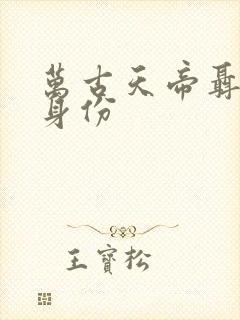 萬古天帝聶
身份
王寶松